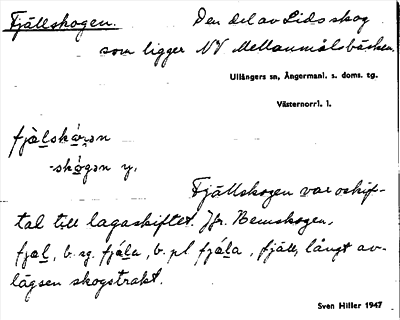 Fjällskogen. Den del av Lids skog
som ligger NV Mellanmålsbäcken.
Ullångers sn, Ångermanl. s. doms. tg.
Västernorrl. l.
fjälskå̱gən
-skó̱gən y.
Fjällskogen var oskif-
tal till lagaskiftet. Jfr. Bemskogen,
fjæl, b. sg. fjä́la, b. pl. fjä́la, fjäll, långt av-
lägsen skogstrakt.
Sven Hiller 1947